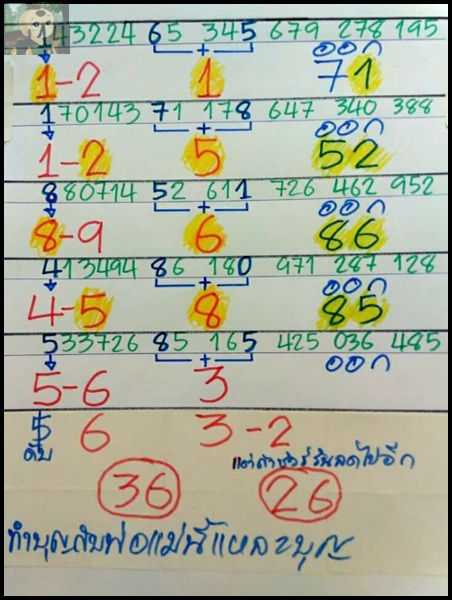 143224 65 345 679 278 195
+ ออก
1-2 1 71
170143 71 178 647 340 388
+ ออก
1-2 5 52
880714 52 611 726 462 952
+ ออก
8-9 6 86
413494 86 180 971 287 128
+ ออก
4-5 8 85
533726 85 165 425 036 485
+ ออก
5-6 3
5 6 3-2
ดับ
36 26
ทำบุญกับพ่อแม่นี่แหละบุญ